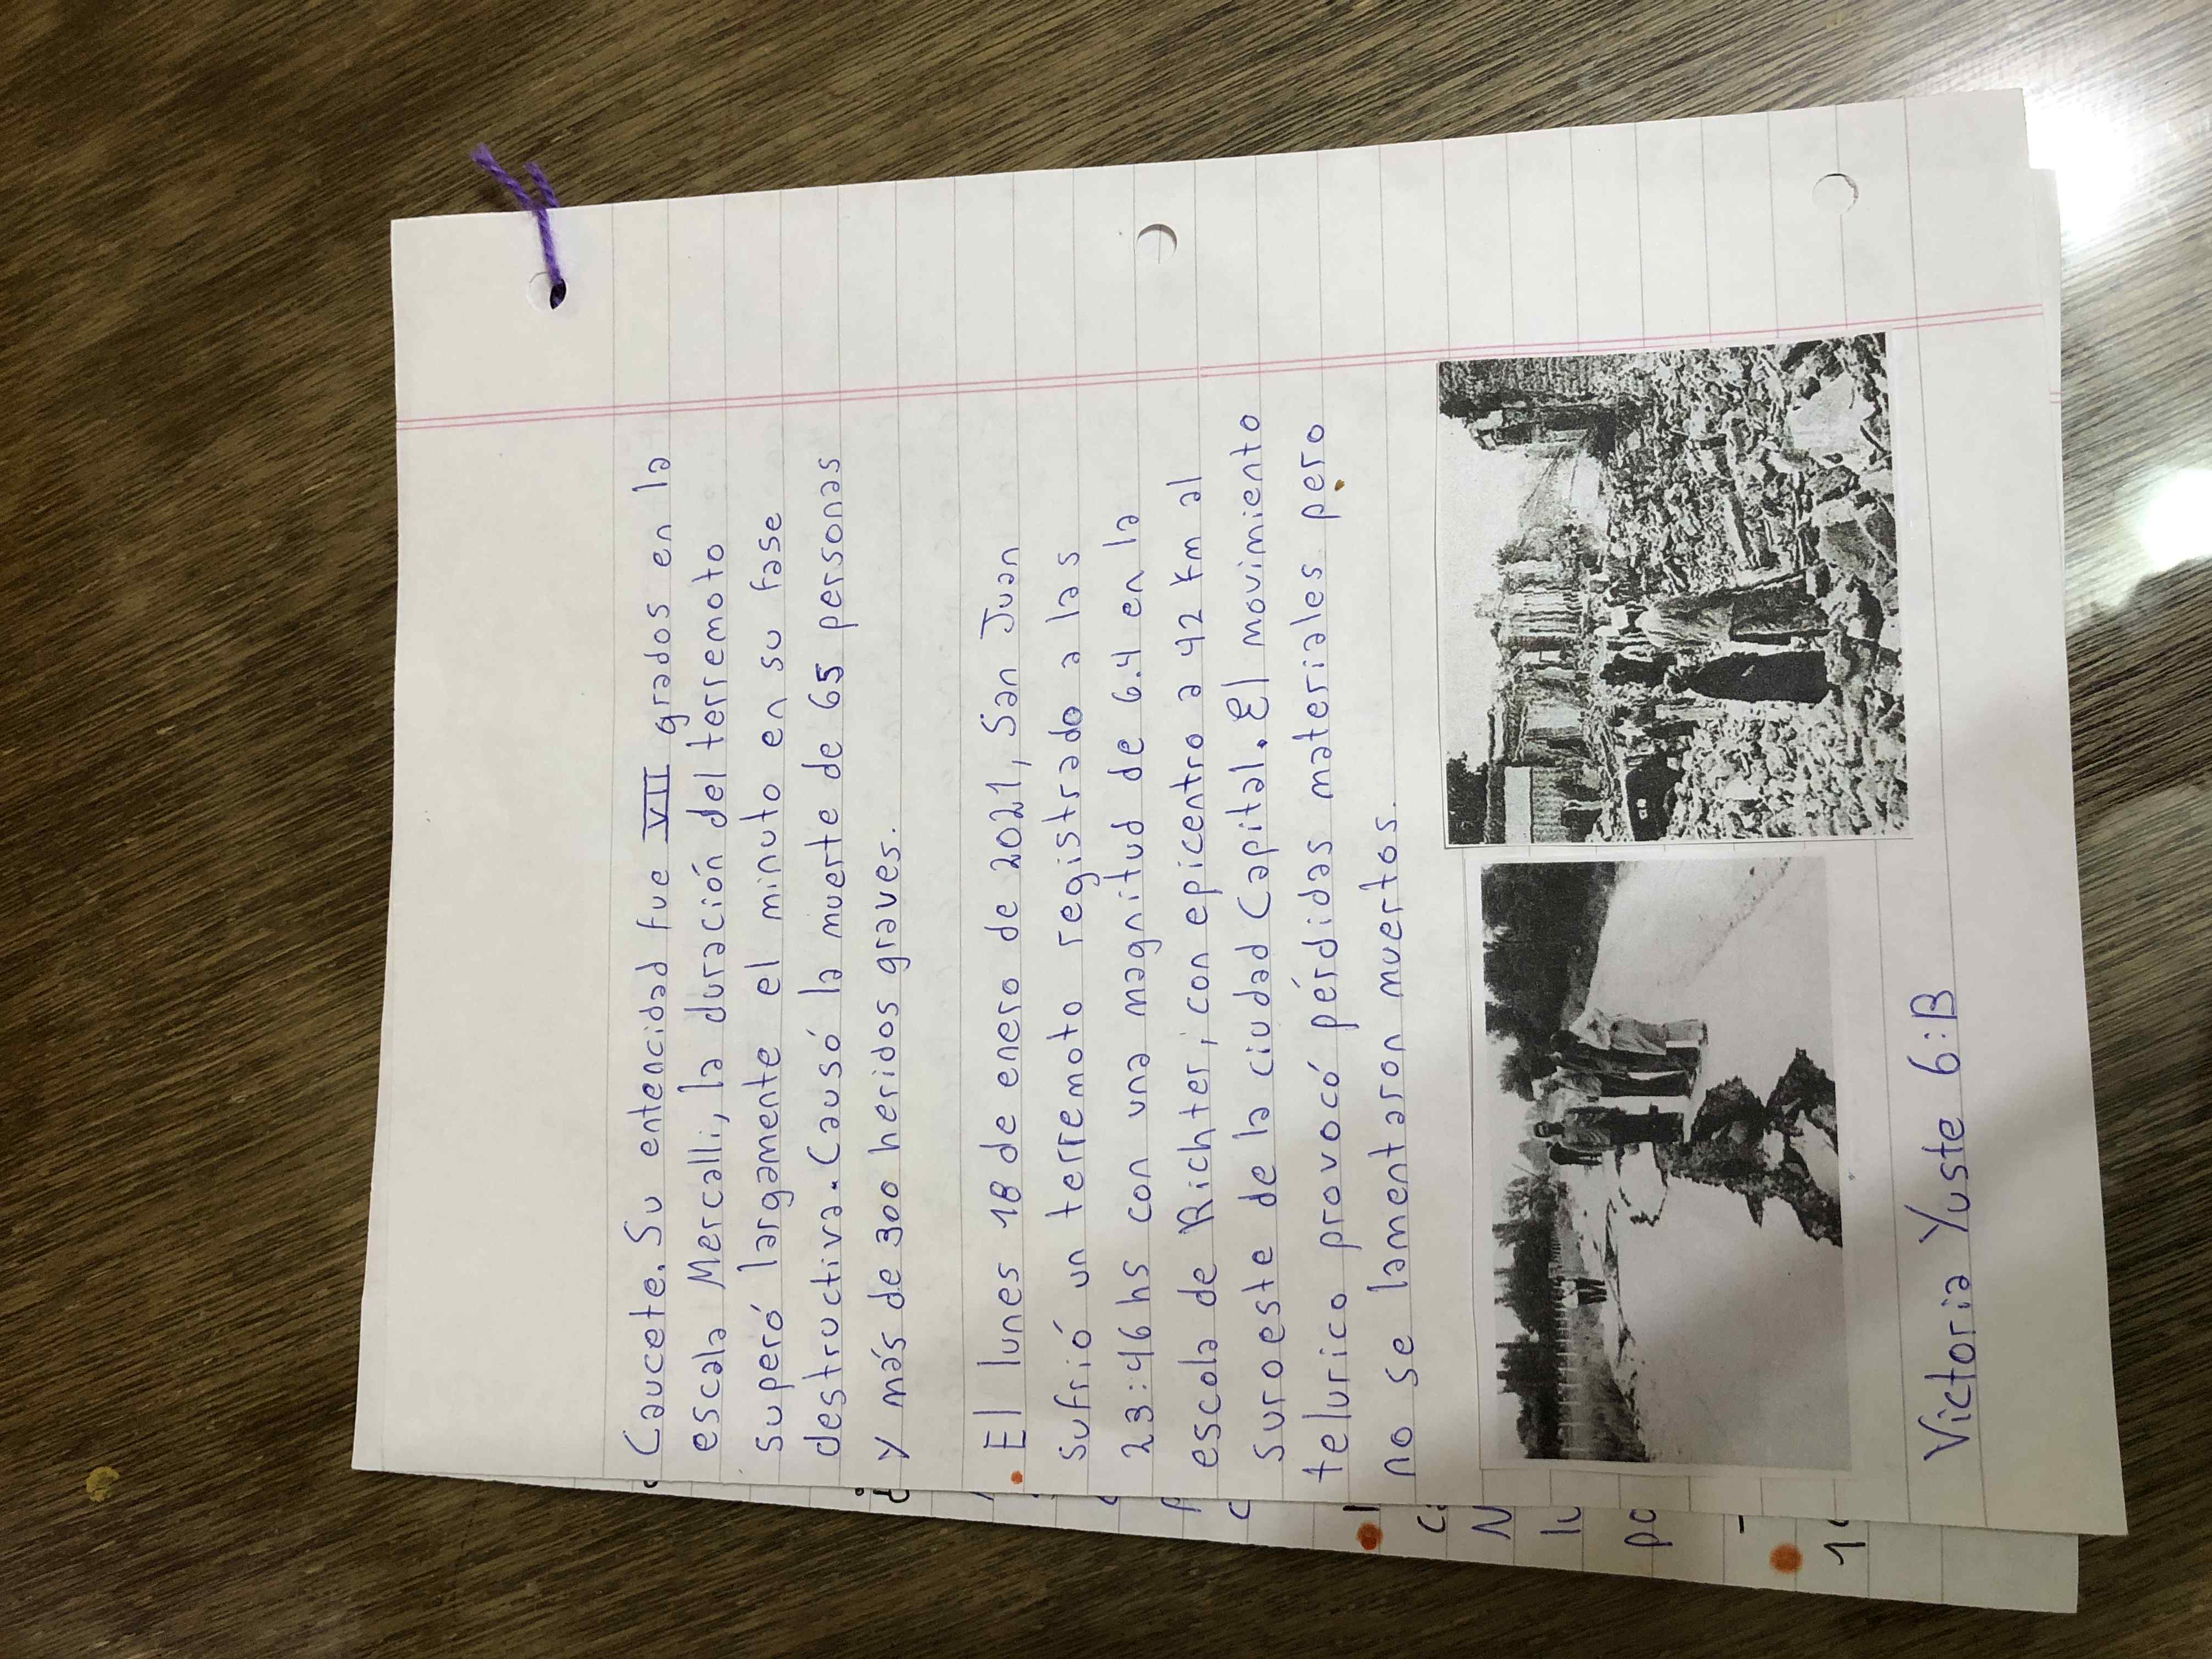 Caucete. Su entencidad fue VII grados en la
escala Mercalli, la duración del terremoto
superó largamente el minuto en su fase
destructiva. Causó la muerte de 65 personas
y más de 300 heridos graves.
• El lunes 18 de enero de 2021, San Juan
sufrió un terremoto registrado a las
23:46 hs con una magnitud de 6.4 en la
escala de Richter, con epicentro a 42 km al
suroeste de la ciudad Capital. El movimiento
telurico provocó pérdidas materiales pero
no se lamentaron muertos.
Victoria Yuste 6:B